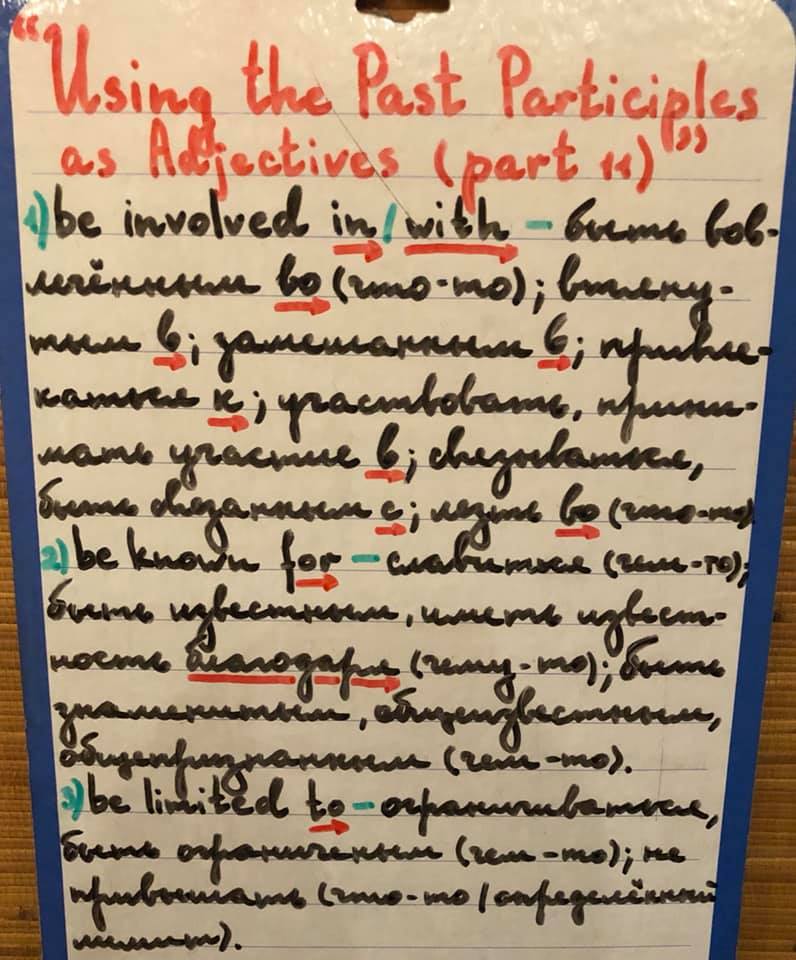 "Using the Past Participles
as Adjectives (part 11)"
1) be involved in/with - быть вов-
лечённым во (что-то); втяну-
тым в; замешанным в; привле-
каться к; участвовать, прини-
мать участие в; связываться,
быть связанным с; лезть во (что-то)
2) be known for - славиться (чем-то);
быть известным, иметь извест-
ность благодаря (чему-то); быть
знаменитым, общеизвестным,
общепризнанным (чем-то).
3) be limited to - ограничиваться,
быть ограниченным (чем-то); не
привышать (что-то/определённый
лимит).